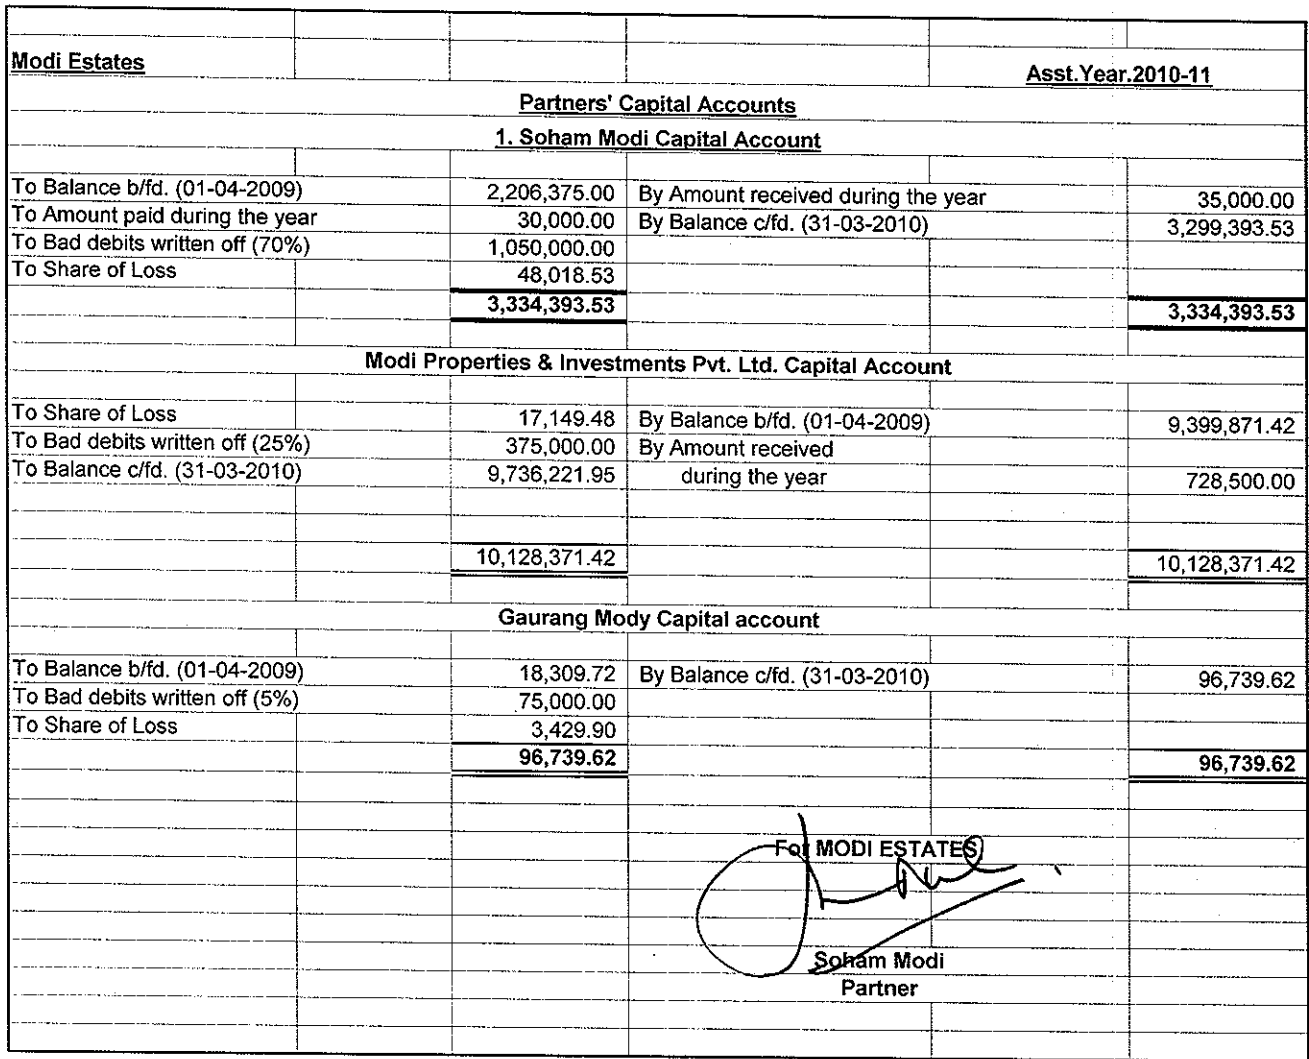 Modi Estates Asst.Year.2010-11
Partners' Capital Accounts
1. Soham Modi Capital Account
To Balance b/fd. (01-04-2009) 2,206,375.00 By Amount received during the year 35,000.00
To Amount paid during the year 30,000.00 By Balance c/fd. (31-03-2010) 3,299,393.53
To Bad debits written off (70%) 1,050,000.00
To Share of Loss 48,018.53
3,334,393.53 3,334,393.53
Modi Properties & Investments Pvt. Ltd. Capital Account
To Share of Loss 17,149.48 By Balance b/fd. (01-04-2009) 9,399,871.42
To Bad debits written off (25%) 375,000.00 By Amount received
To Balance c/fd. (31-03-2010) 9,736,221.95 during the year 728,500.00
10,128,371.42 10,128,371.42
Gaurang Mody Capital account
To Balance b/fd. (01-04-2009) 18,309.72 By Balance c/fd. (31-03-2010) 96,739.62
To Bad debits written off (5%) 75,000.00
To Share of Loss 3,429.90
96,739.62 96,739.62
For MODI ESTATES
Soham Modi
Partner